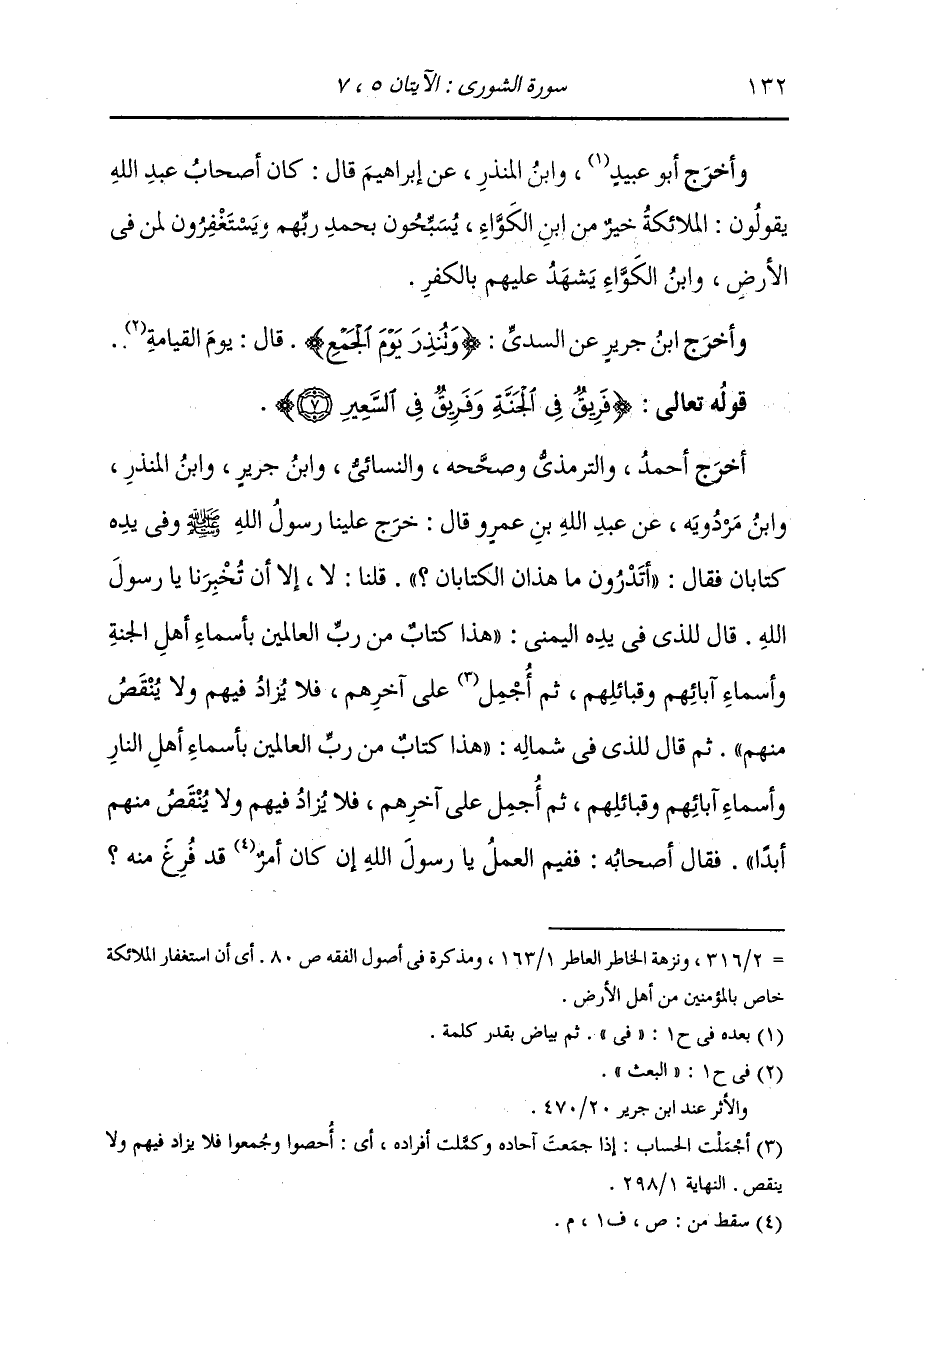 ١٣٢ سورة الشورى : الآيتان ٥ ، ٧
وأخرَج أبو عبيدٍ(١) ، وابنُ المنذرِ ، عن إبراهيمَ قال : كان أصحابُ عبدِ اللهِ
يقولُون : الملائكةُ خيرٌ من ابنِ الكَوَّاءِ ، يُسَبِّحُون بحمدِ ربِّهم ويَسْتَغْفِرُون لمن فى
الأرضِ ، وابنُ الكَوَّاءِ يَشهَدُ عليهم بالكفرِ .
وأخرَج ابنُ جريرٍ عن السدىِّ : ﴿وَنُنذِرَ يَوْمَ ٱلْجَمْعِ﴾ . قال : يومَ القيامةِ(٢) .
قولُه تعالى : ﴿فَرِيقٌ فِى ٱلْجَنَّةِ وَفَرِيقٌ فِى ٱلسَّعِيرِ ٧﴾ .
أخرَج أحمدُ ، والترمذىُّ وصحَّحه ، والنسائىُّ ، وابنُ جريرٍ ، وابنُ المنذرِ ،
وابنُ مَرْدُويَه ، عن عبدِ اللهِ بنِ عمرٍو قال : خرَج علينا رسولُ اللهِ ﷺ وفى يدِه
كتابان فقال : «أتَدْرُون ما هذان الكتابان ؟» . قلنا : لا ، إلا أن تُخْبِرَنا يا رسولَ
اللهِ . قال للذى فى يدِه اليمنى : «هذا كتابٌ من ربِّ العالمين بأسماءِ أهلِ الجنةِ
وأسماءِ آبائِهم وقبائلِهم ، ثم أُجْمِل(٣) على آخرِهم ، فلا يُزادُ فيهم ولا يُنْقَصُ
منهم» . ثم قال للذى فى شمالِه : «هذا كتابٌ من ربِّ العالمين بأسماءِ أهلِ النارِ
وأسماءِ آبائِهم وقبائلِهم ، ثم أُجمِل على آخرِهم ، فلا يُزادُ فيهم ولا يُنْقَصُ منهم
أبدًا» . فقال أصحابُه : ففيم العملُ يا رسولَ اللهِ إن كان أمرٌ(٤) قد فُرِغَ منه ؟
= ٣١٦/٢ ، ونزهة الخاطر العاطر ١٦٣/١ ، ومذكرة فى أصول الفقه ص ٨٠ . أى أن استغفار الملائكة
خاص بالمؤمنين من أهل الأرض .
(١) بعده فى ح١ : « فى » . ثم بياض بقدر كلمة .
(٢) فى ح١ : « البعث » .
والأثر عند ابن جرير ٤٧٠/٢٠ .
(٣) أجْمَلْت الحساب : إذا جمَعتَ آحاده وكمَّلت أفراده ، أى : أُحصوا وجُمعوا فلا يزاد فيهم ولا
ينقص . النهاية ٢٩٨/١ .
(٤) سقط من : ص ، ف١ ، م .